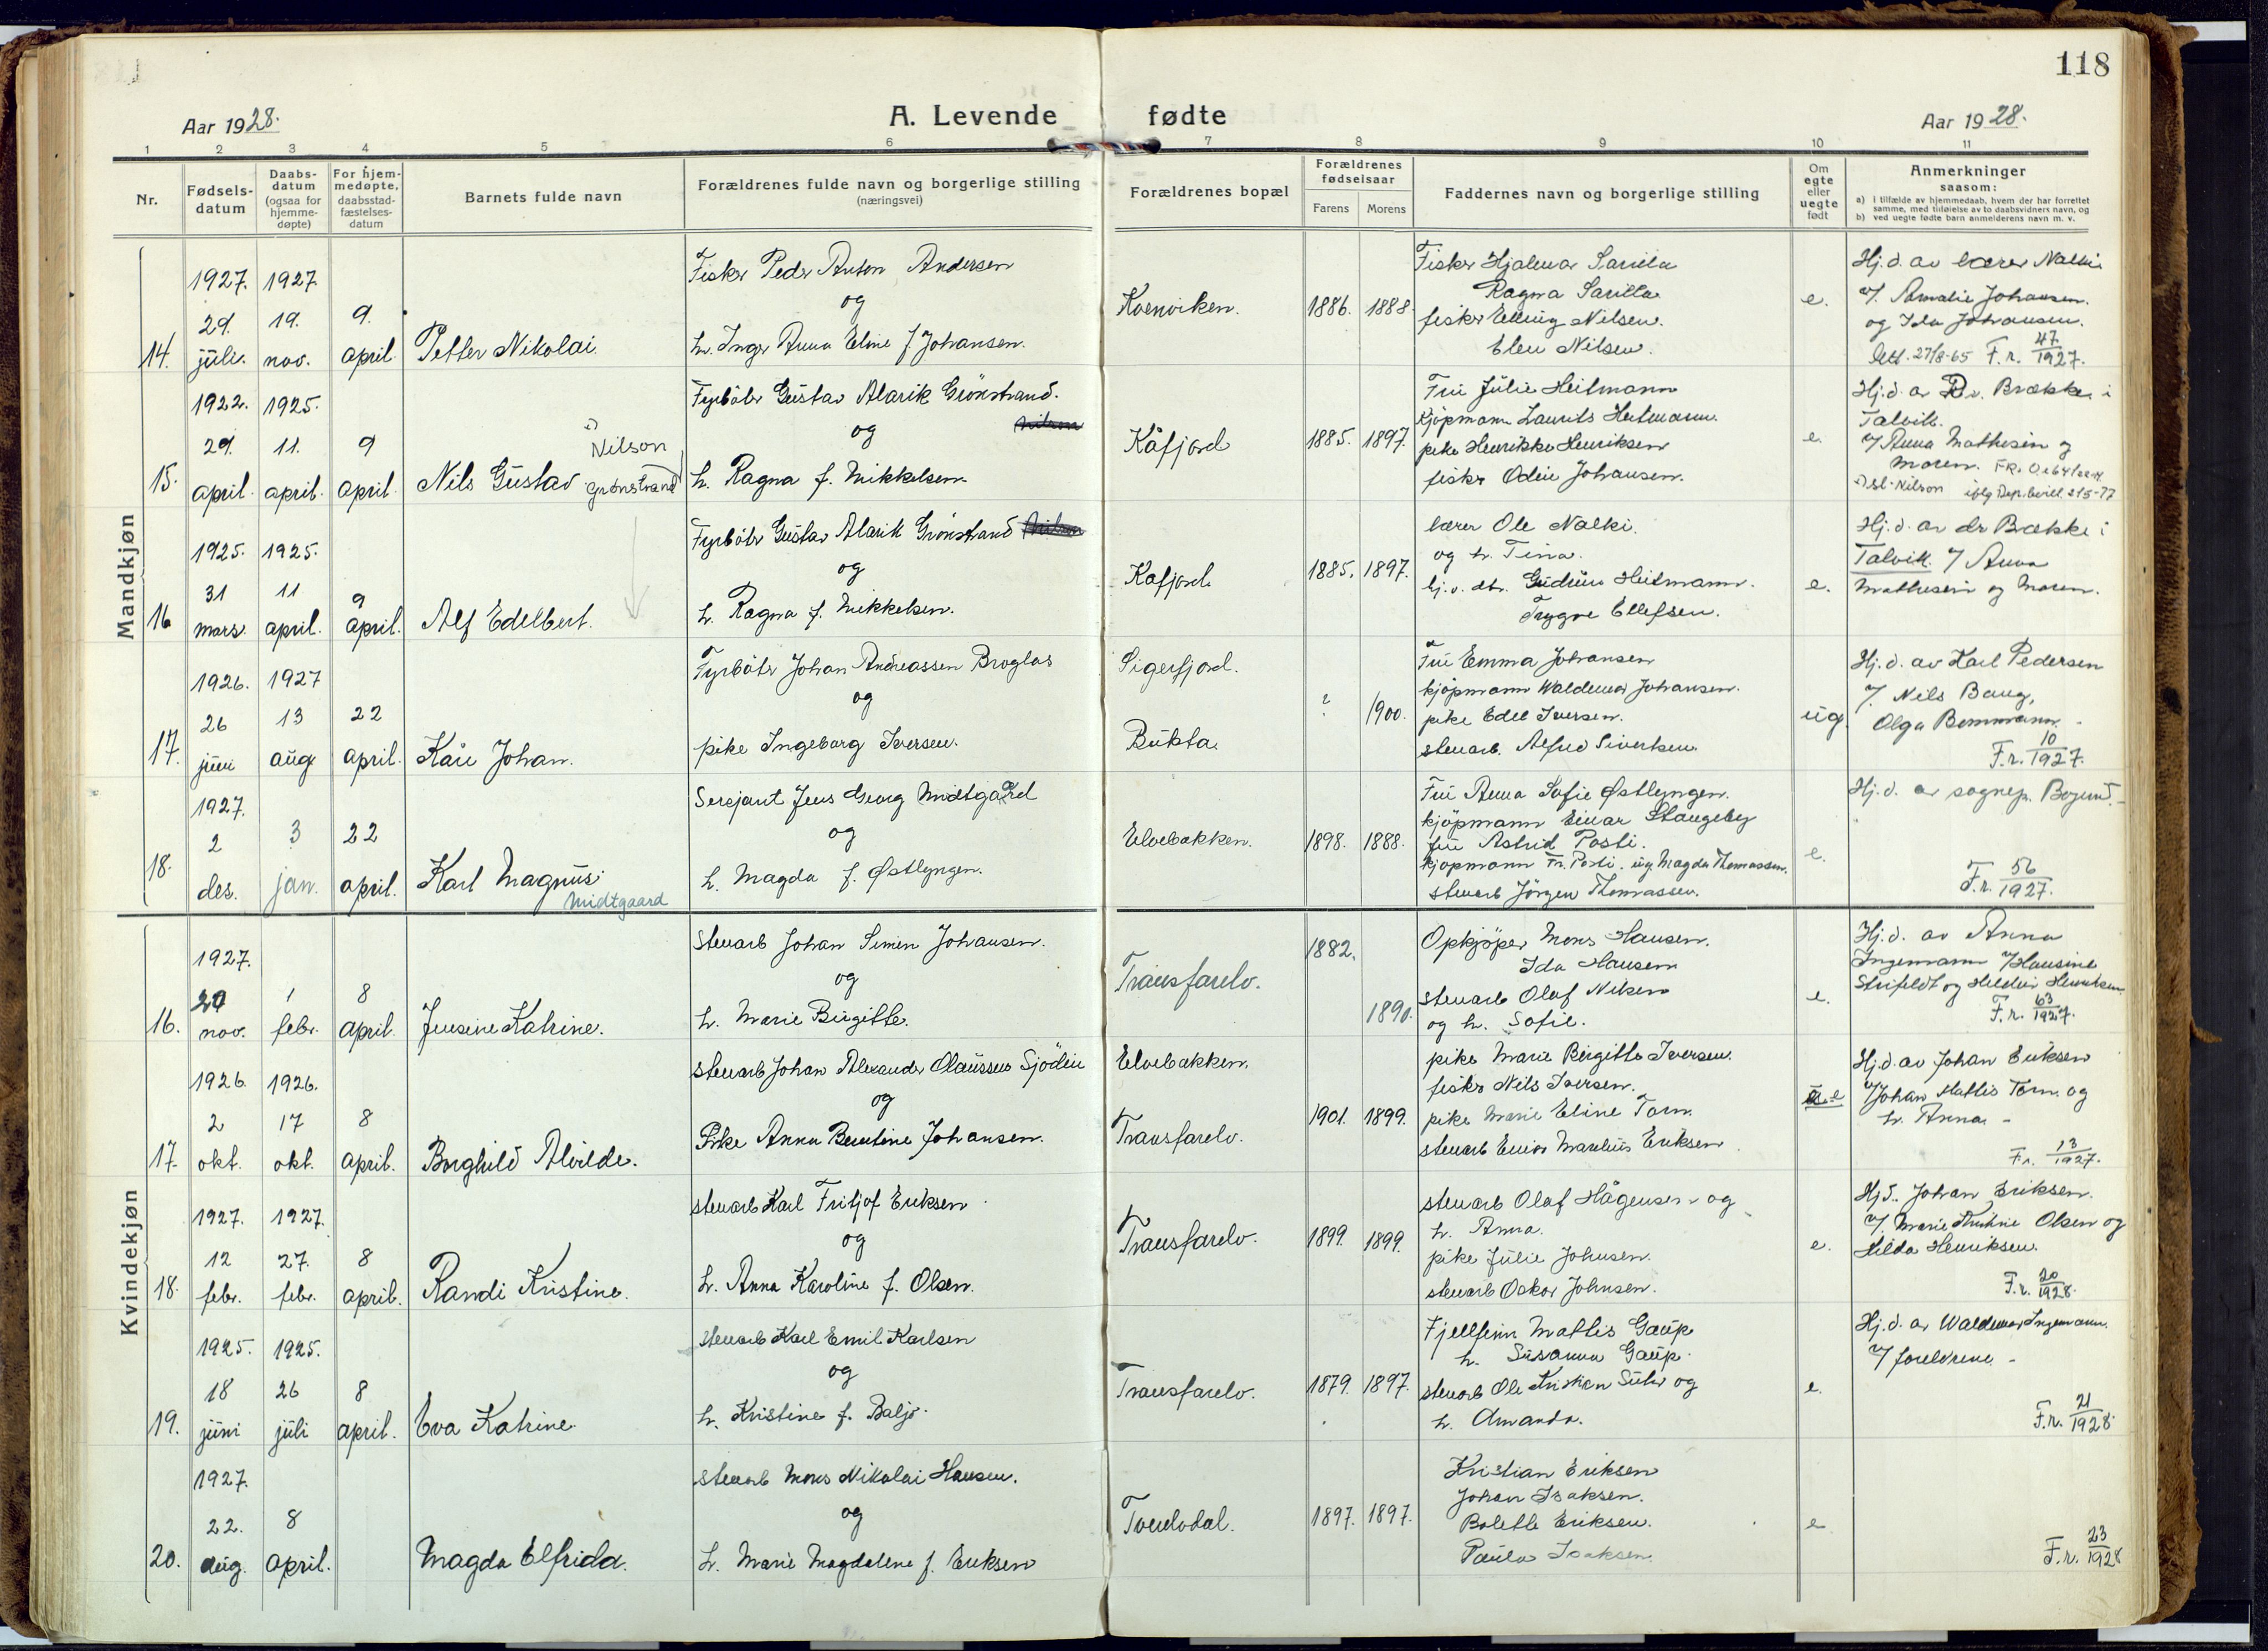 118
Aar 1928.
A. Levende fødte
Aar 1928.
1 2 3 4 5 6 7 8 9 10 11
Nr.
Fødsels-
datum
Daabs-
datum
(ogsaa for
hjemme-
døpte)
For hjem-
medøpte,
daabsstad-
fæstelses-
datum
Barnets fulde navn
Forældrenes fulde navn og borgerlige stilling
(næringsvei)
Forældrenes bopæl
Forældrenes
fødselsaar
Farens Morens
Faddernes navn og borgerlige stilling
Om
egte
eller
uegte
født
Anmerkninger
saasom:
a) i tilfælde av hjemmedaab, hvem der har forrettet
samme, med tilføielse av to daabsvidners navn, og
b) ved uegte fødte barn anmelderens navn m. v.
Mandkjøn
14.
1927.
29.
juli.
1927
19.
nov.
9.
april
Petter Nikolai.
Fisker Peder Anton Andersen
og
h. Inger Anna Eline f. Johansen.
Kvenviken.
1886. 1888.
Fisker Hjalmar Sarilla
Ragna Sarilla
fisker Elling Nilsen.
Elen Nilsen.
e.
Hj.d. av lærer Nalki
v/ Amalie Johansen.
og Ida Johansen.
Att. 27/8-65 F.r. 47/1927.
15.
1922.
29.
april.
1925.
11.
april.
9
april
Nils Gustav Grönstrand
Nilson
Fyrböter Gustav Alarik Grönstrand.
og
h. Ragna f. Mikkelsen.
Kåfjord
1885. 1897.
Fru Julie Heitmann
Kjöpmann Laurits Heitmann.
pike Henrikke Henriksen
fisker Odin Johansen.
e.
Hj.d. av Dr. Brække i
Talvik.
v/ Anna Mathesin og
moren.
sl. Nilson iflg Dep. bevill. 21/5-77
16
1925.
31
mars.
1925.
11
april.
9
april.
Alf Edelbert.
Fyrböter Gustav Alarik Grönstrand
og
h. Ragna f. Mikkelsen.
Kåfjord
1885. 1897.
lærer Ole Nalki.
og h. Tina.
hj.v. dtr. Gudrun Heitmann.
Trygve Ellefsen.
e.
Hj.d. av dr Brække i
Talvik. v/ Anna
Mathesin og moren.
17.
1926.
26
juni
1927
13
aug
22
april.
Kåre Johan.
Fyrböter Johan Andreassen Broglas
og
pike Ingeborg Iversen.
Sigerfjord.
Bukta.
? 1900.
Fru Emma Johansen
kjöpmann Waldemar Johansen.
pike Edel Iversen.
stenarb. Alfred Sivertsen.
ug.
Hj.d. av Karl Pedersen
v/ Nils Baug,
Olga Bommann.
F.r. 10/1927.
18.
1927.
2
des.
3
jan.
22
april.
Karl Magnus
Midtgaard
Sersjant Jens Georg Midtgaard
og
h. Magda f. Østlyngen.
Elvebakken.
1898. 1888.
Fru Anna Sofie Østlyngen.
kjöpmann Einar Stangeby
fru Astrid Posti.
kjöpmann Fr. Posti. og Magda Thomassen.
stenarb Jörgen Thomassen.
e.
Hj.d. av sognepr.
F.r. 56/1927.
Kvindekjøn
16.
1927.
20
nov.
1
febr.
8
april.
Jensine Katrine.
Stenarb Johan Simen Johansen.
og
h. Marie Birgitte.
Transfarelv.
1882. 1890.
Opkjöper Mons Hansen.
Ida Hansen
stenarb Olaf Nilsen
og h. Sofie.
e.
Hj.d. av Anna
Ingemann v/ Hansine
Strifeldt og Heldin Henriksen
F.r. 63/1927.
17.
1926
2
okt.
1926.
17
okt.
8
april.
Borghild Alvilde.
stenarb Johan Alexander Olaussen Sjödin
og
Pike Anna Berntine Johansen.
Elvebakken.
Transfarelv.
1901. 1899.
pike Marie Birgitte Iversen.
fisker Nils Iversen.
pike Marie Eline Torn.
stenarb Einar Marelius Eriksen
Hj.d. av Johan Eriksen
v/ Johan Mattis Torn. og
h. Anna.
F.r. 13/1927.
18.
1927.
12
febr.
1927.
27.
febr.
8
april.
Randi Kristine.
stenarb Karl Fritjof Eriksen
og
h. Anna Karoline f. Olsen.
Transfarelv.
1899. 1899.
stenarb Olaf Hågensen og
h. Anna.
pike Julie Johnsen.
stenarb Oskar Johnsen.
e.
Hj.d. Johan Eriksen.
v/ Marie Katrine Olsen og
Hilda Henriksen.
F.r. 20/1928.
19.
1925.
18
juni
1925.
26
juli
8
april.
Eva Katrine
stenarb Karl Emil Karlsen
og
h. Kristine f. Baljo.
Transfarelv.
1879. 1897.
Fjellfinn Mattis Gaup
h. Susanna Gaup.
stenarb Ole Kristian Suhr og
h. Amanda.
e.
Hj.d. av Waldemar Ingemann.
v/ foreldrene.
F.r. 21/1928.
20.
1927.
22.
aug.
8
april.
Magda Elfrida.
stenarb Mons Nikolai Hansen.
og
h. Marie Magdalene f. Eriksen
Tverelvdal.
1897. 1897.
Kristian Eriksen
Johan Isaksen.
Bolette Eriksen.
Paula Isaksen.
e
F.r. 23/1928